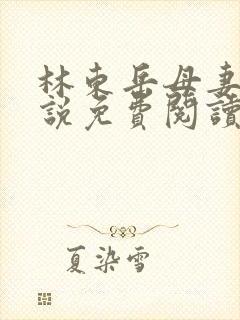 林東岳母妻
說免費閱讀
夏染雪